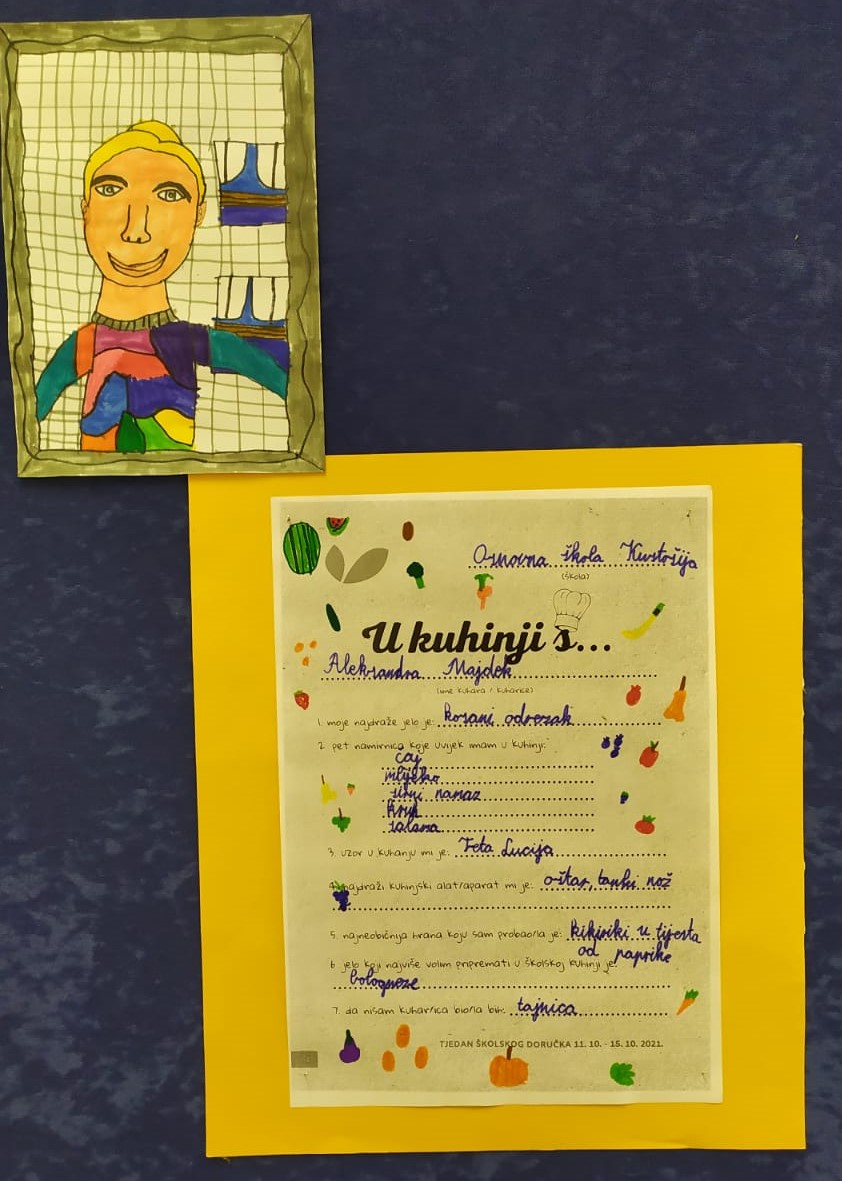 Osnovna škola Kustošija
(škola)
U kuhinji s...
Aleksandra Majdek
(ime kuhara / kuharice)
1. moje najdraže jelo je: kosani odrezak
2. pet namirnica koje uvijek imam u kuhinji:
čaj
mlijeko
sirni namaz
kruh
salama
3. uzor u kuhanju mi je: Teta Lucija
4. najdraži kuhinjski alat/aparat mi je: oštar, tanki nož
5. najneobičnija hrana koju sam probao/la je: kikiriki u tijesta
od paprike
6. jelo koji najviše volim pripremati u školskoj kuhinji je:
bologneze
7. da nisam kuhar/ica bio/la bih: tajnica
TJEDAN ŠKOLSKOG DORUČKA 11. 10. - 15. 10. 2021.